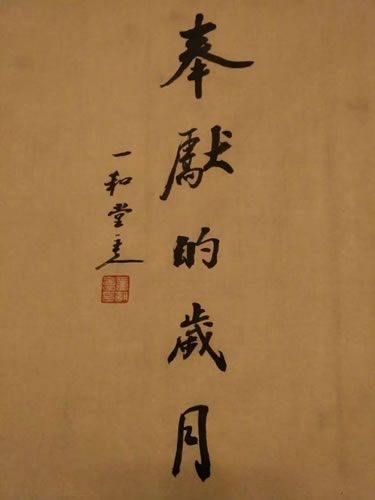 奉獻的歲月
一和堂主